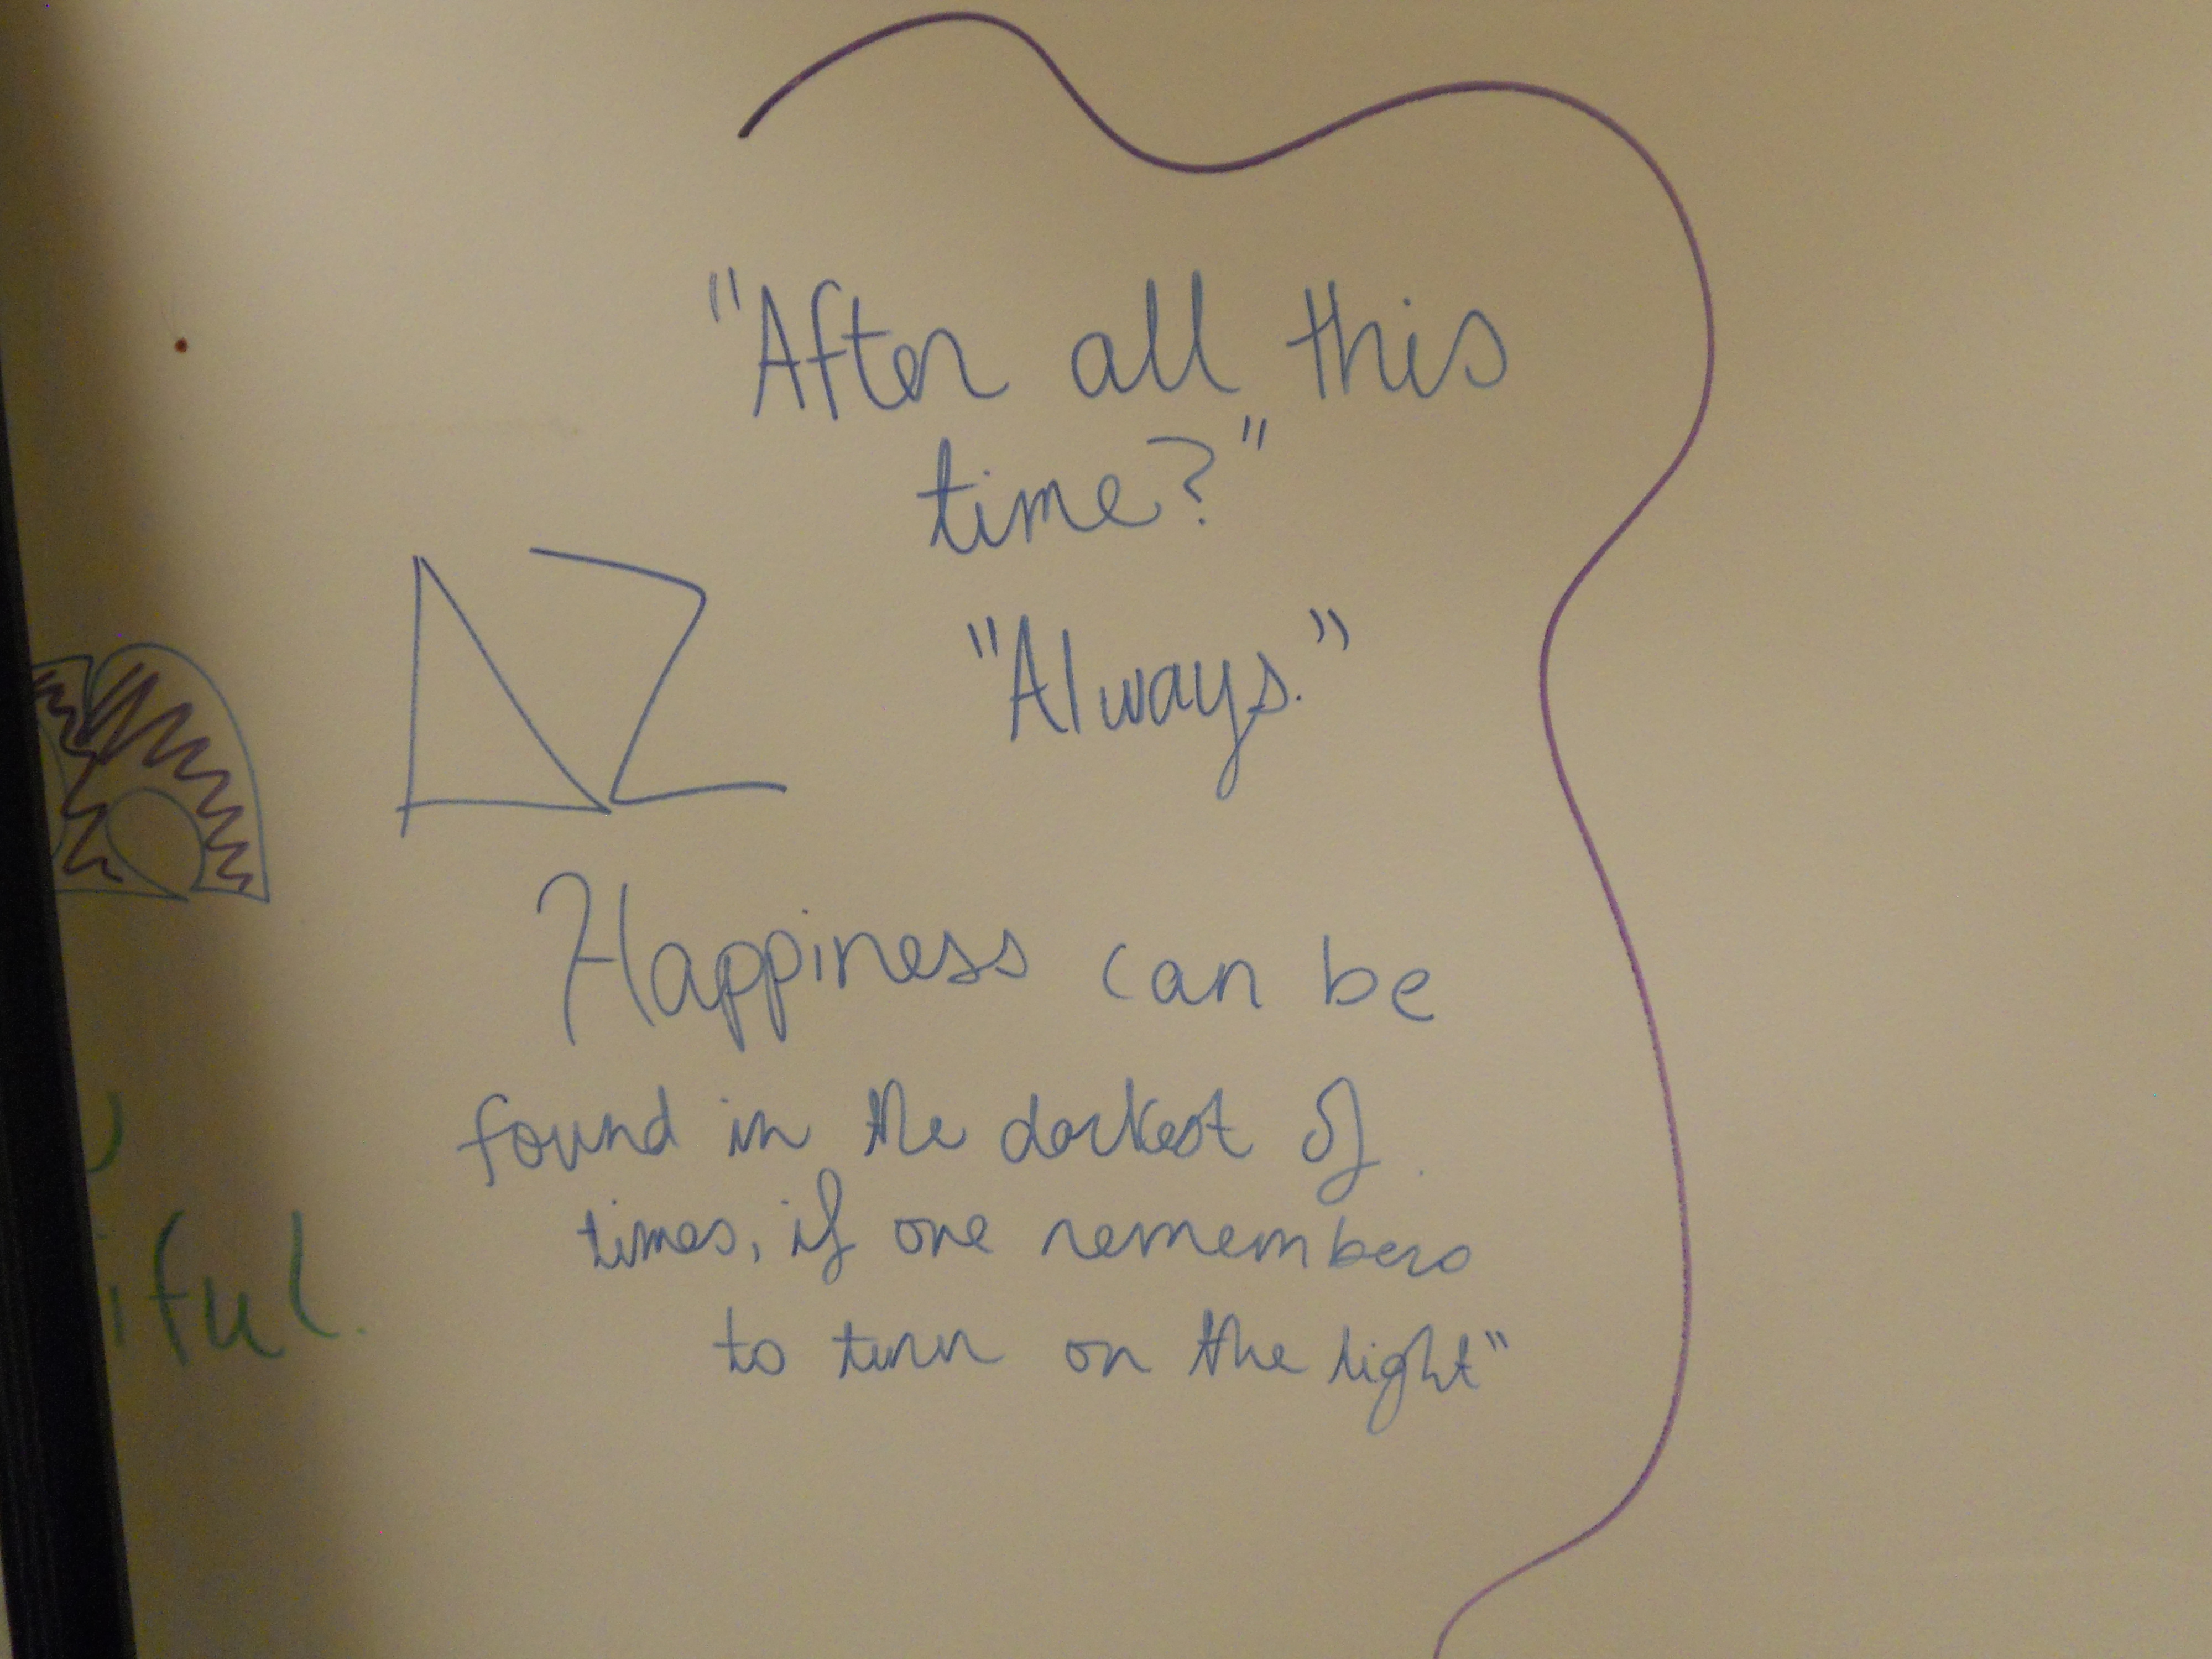 "After all this
time?"
"Always."
Happiness can be
found in the darkest of
times, if one remembers
to turn on the light"
iful.